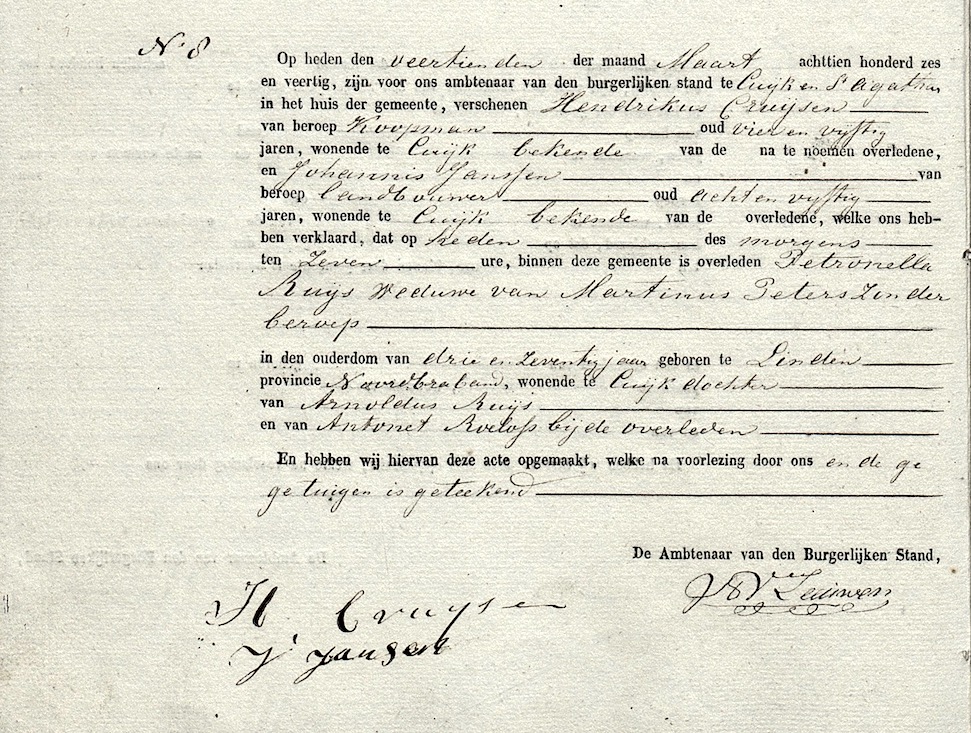 No 8
Op heden den veertienden der maand Maart achttien honderd zes
en veertig, zijn voor ons ambtenaar van den burgerlijken stand te Cuijk en St Agatha
in het huis der gemeente, verschenen Hendrikus Cruijsen
van beroep Koopman oud vier en vijftig
jaren, wonende te Cuijk bekende van de na te noemen overledene,
en Johannis Janssen van
beroep Landbouwer oud acht en vijftig
jaren, wonende te Cuijk bekende van de overledene, welke ons heb-
ben verklaard, dat op heden des morgens
ten Zeven ure, binnen deze gemeente is overleden Petronella
Ruijs Weduwe van Martinus Peters Zonder
beroep
in den ouderdom van drie en Zeventig jaar geboren te Linden
provincie Noordbraband, wonende te Cuijk dochter
van Arnoldus Ruijs
en van Antonet Roelofs bijde overleden
En hebben wij hiervan deze acte opgemaakt, welke na voorlezing door ons en de ge
getuigen is geteekend
De Ambtenaar van den Burgerlijken Stand,
Leeuwen
H Cruysen
J Jansen